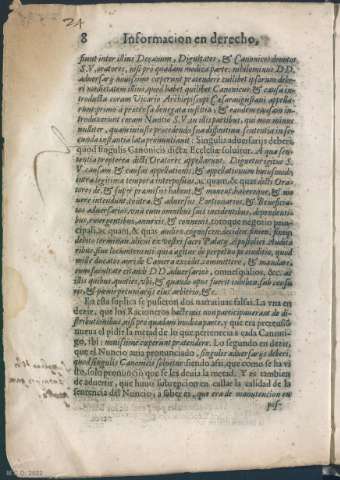 24
8 Informacion en derecho,
fiunt inter illius Decanum, Dignitates, & Canonicos devotos
S.V. oratores, nisi pro quadam modica parte, nihilominus DD.
adversarij novissime ceperunt prætendere cuilibet ipsorum debe-
ri medietatem illius, quod habet quilibet Canonicus, & causa in-
troducta coram Vicario Archiepiscopi Cæsaraugustani appella-
runt primo à prætensa denegata iustitia, & eandem causam in-
troduxerunt coram Nuntio S.V. in illis partibus, qui non minus
militer, quam iniuste procedendo sua diffinitiva sententia in se-
cunda instantia lata pronuntiavit: Singulis adversarijs deberi,
quod singulis Canonicis dictæ Ecclesiæ solvitur. A qua sen-
tentia prætorea dicti Oratores appellarunt. Dignetur igitur S.
V. causam & causas appellationis, & appellationum huiusmodi,
intra legitima tempora interpositas, ac quam, & quas dicti Orato-
res de, & super præmissis habent, & movent, habereque, & mo-
vere intendunt, contra, & adversus Portionarios, & Beneficia-
tos adversarios, una cum omnibus suis incidentibus, dependenti-
bus, emergentibus, annexis, & connexis, totoque negotio prin-
cipali, ac quam, & quas audien. cognoscen. deciden. finien. fineque
debito terminan. alicui ex vestri sacri Palatij Apostolici Audito-
ribus, sive locumtenenti
mille ducatos auri de Camera excedit, committere, & mandare,
cum facultate citandi DD. adversarios, omnesque alios, &c. ac
illis quibus quoties, ubi, & quando opus fuerit inhiben. sub censu-
ris, & pœnis pecuniarijs eius arbitrio, &c.
En esta suplica se pusieron dos narrativas falsas. La una en
dezir, que los Racioneros hactenus non participaverant de di-
stributionibus, nisi pro quadam modica parte, y que era pretensiõ
nueva el pidir la mitad de lo que pertenecia a cada Canoni-
go, ibi: novissime ceperunt prætendere. Lo segundo en dezir,
que el Nuncio avia pronunciado, singulis adversarijs deberi,
quod singulis Canonicis solvitur: siendo assi, que como se ha vi-
sto, solo pronunciò que se les devia la metad. Y es tambien
de advertir, que huvo subrepcion en callar la calidad de la
sentencia del Nuncio, a saber es, que era de manutencion en
pos-